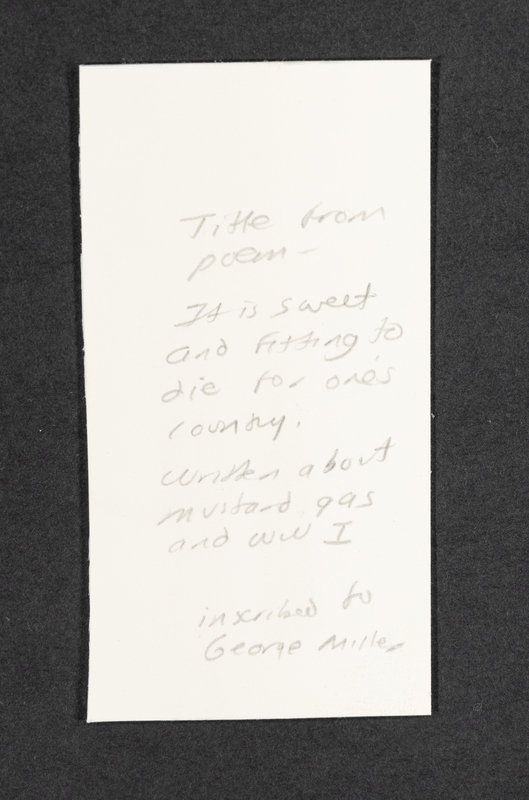 Title from
poem –
It is sweet
and fitting to
die for one's
country.
written about
mustard gas
and WW I
inscribed to
George Miller